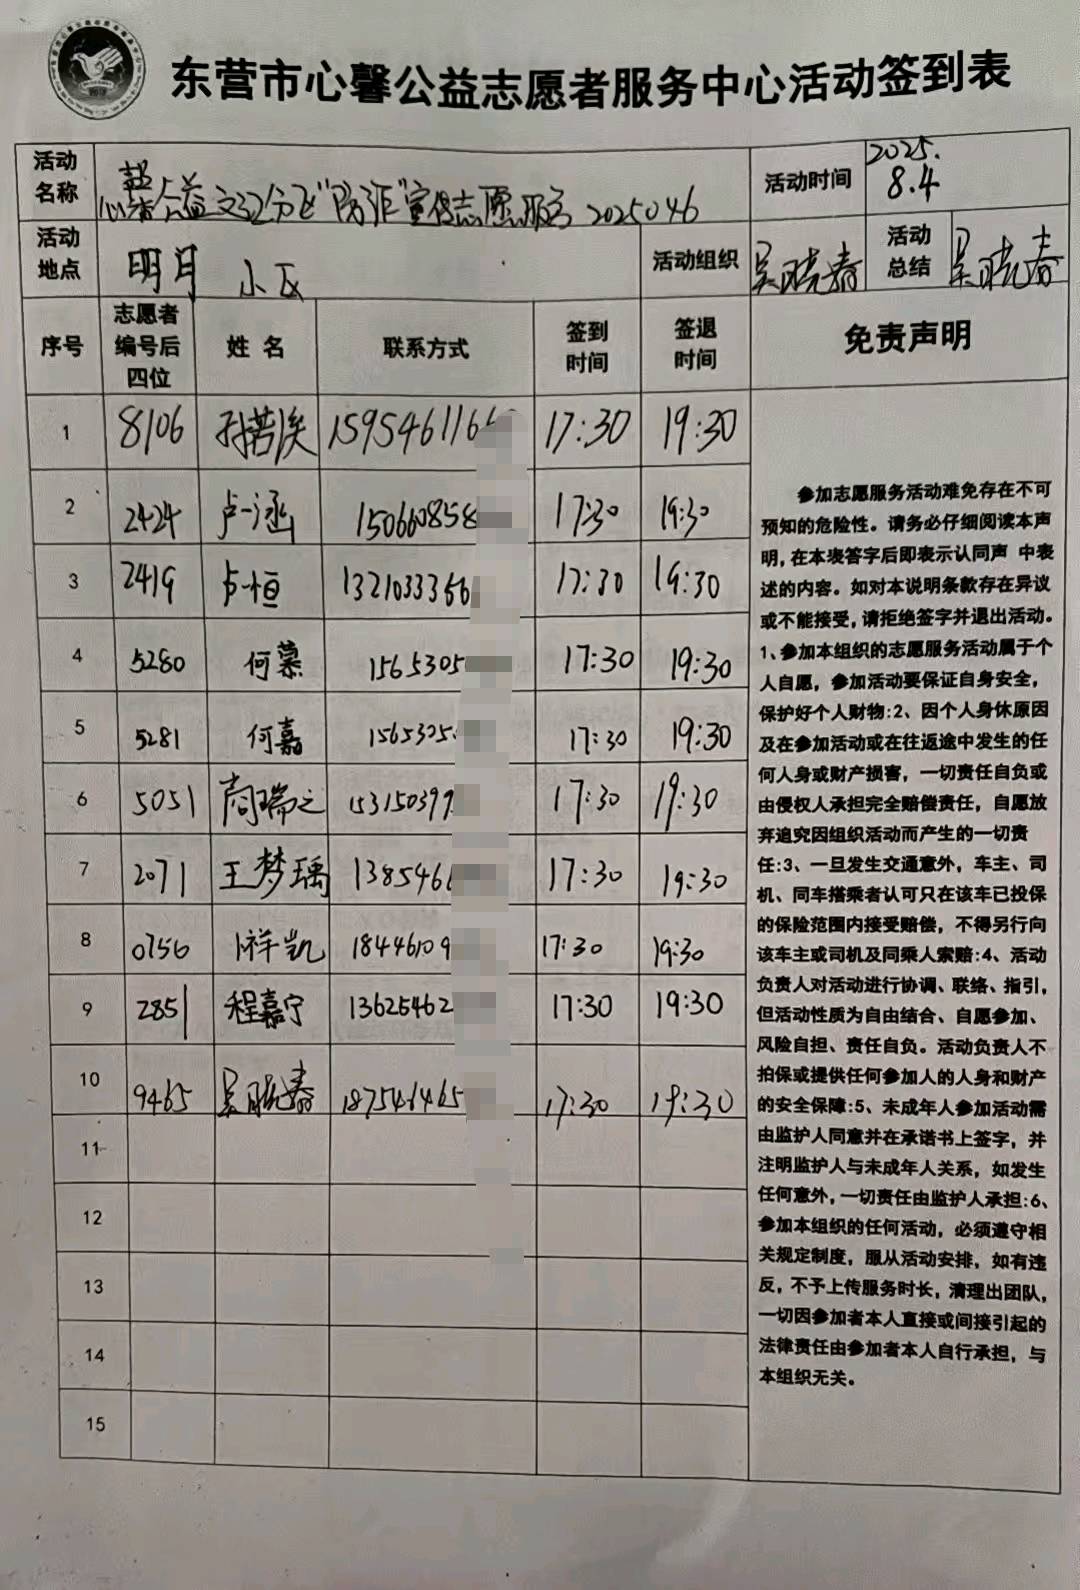 东营市心馨公益志愿者服务中心活动签到表
活动名称 心馨公益之江分飞“防诈”宣传志愿服务 2025046 活动时间 2025.8.4
活动地点 明月小区 活动组织 吴晓春 活动总结 吴晓春
序号 志愿者编号后四位 姓名 联系方式 签到时间 签退时间 免责声明
1 8106 1595461166 17:30 19:30
2 2424 卢一涵 150660858 17:30 19:30
3 2419 卢一恒 1321033366 17:30 19:30
4 5280 何慕 1565305 17:30 19:30
5 5281 何嘉 1565305 17:30 19:30
6 5051 尚瑞之 153150397 17:30 19:30
7 2071 王梦瑀 1385466 17:30 19:30
8 0756 祥凯 18446109 17:30 19:30
9 2851 程嘉宁 13625462 17:30 19:30
10 9465 吴晓春 187546465 17:30 19:30
11
12
13
14
15
参加志愿服务活动难免存在不可
预知的危险性。请务必仔细阅读本声
明,在本表答字后即表示认同声 中表
述的内容。如对本说明条款存在异议
或不能接受,请拒绝签字并退出活动。
1、参加本组织的志愿服务活动属于个
人自愿，参加活动要保证自身安全，
保护好个人财物:2、因个人身休原因
及在参加活动或在往返途中发生的任
何人身或财产损害，一切责任自负或
由侵权人承担完全赔偿责任，自愿放
弃追究因组织活动而产生的一切责
任:3、一旦发生交通意外，车主、司
机、同车搭乘者认可只在该车已投保
的保险范围内接受赔偿，不得另行向
该车主或司机及同乘人索赔:4、活动
负责人对活动进行协调、联络、指引，
但活动性质为自由结合、自愿参加、
风险自担、责任自负。活动负责人不
拍保或提供任何参加人的人身和财产
的安全保障:5、未成年人参加活动需
由监护人同意并在承诺书上签字，并
注明监护人与未成年人关系，如发生
任何意外,一切责任由监护人承担:6、
参加本组织的任何活动，必须遵守相
关规定制度，服从活动安排，如有违
反，不予上传服务时长，清理出团队，
一切因参加者本人直接或间接引起的
法律责任由参加者本人自行承担，与
本组织无关。